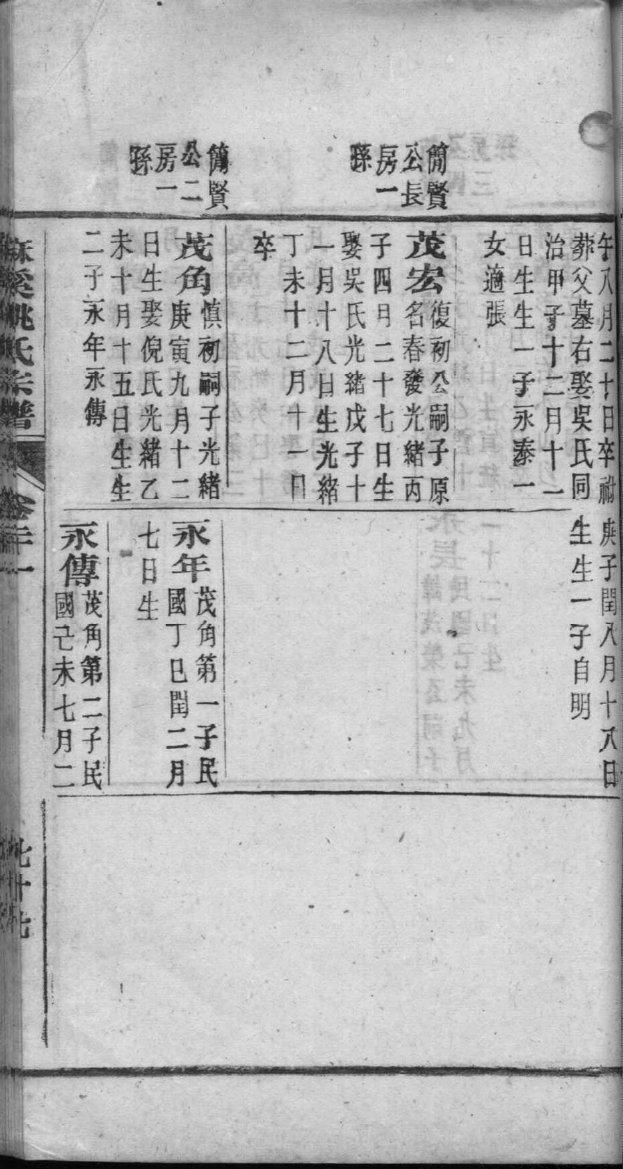 簡賢
公長
房一
孫
簡賢
公二
房一
孫
午八月二十日卒祔
葬父墓右娶吳氏同
治甲子十二月十一
日生生一子永泰一
女適張
茂宏復初公嗣子原
名春發光緒丙
子四月二十七日生
娶吳氏光緒戊子十
一月十八日生光緒
丁未十二月十一日
卒
茂角慎初嗣子光緒
庚寅九月十二
日生娶倪氏光緒乙
未十月十五日生生
二子永年永傳
庚子閏八月十八日
生生一子自明
永年茂角第一子民
國丁巳閏二月
七日生
永傳茂角第二子民
國己未七月二
麻溪姚氏宗譜
卷二十一
九十七